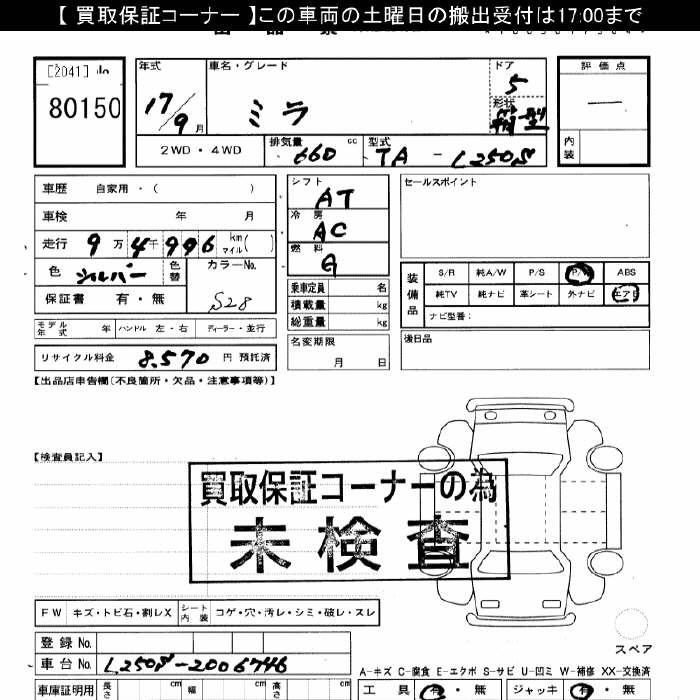 【 買取保証コーナー 】この車両の土曜日の搬出受付は17:00まで
[2041]
80150
年式 車名・グレード ドア 評価点
17/9月 ミラ 5 ー
形状 箱型
2WD・4WD 排気量 660 cc 型式 TA - L250S 内装
車歴 自家用・( )
車検 年 月
走行 9万4千996 km マイル( )
色 シルバー 色替 カラーNo. S28
保証書 有・無
モデル年式 年 ハンドル 左・右 ディーラー・並行
リサイクル料金 8,570 円 預託済
シフト AT
冷房 AC
燃料 G
乗車定員 名
積載量 kg
総重量 kg
名変期限
月 日
セールスポイント
装備品 S/R 純A/W P/S P/W ABS
純TV 純ナビ 革シート 外ナビ エアB
ナビ型番:
後日品
【出品店申告欄(不良箇所・欠品・注意事項等)】
【検査員記入】
買取保証コーナーの為
未検査
FW キズ・トビ石・割レX シート内装 コゲ・穴・汚レ・シミ・破レ・スレ
登録 No.
車台 No. L250S-2006746
スペア
A-キズ C-腐食 E-エクボ S-サビ U-凹ミ W-補修 XX-交換済
車庫証明用 長さ cm 幅 cm 高さ cm
工具 有・無 ジャッキ 有・無